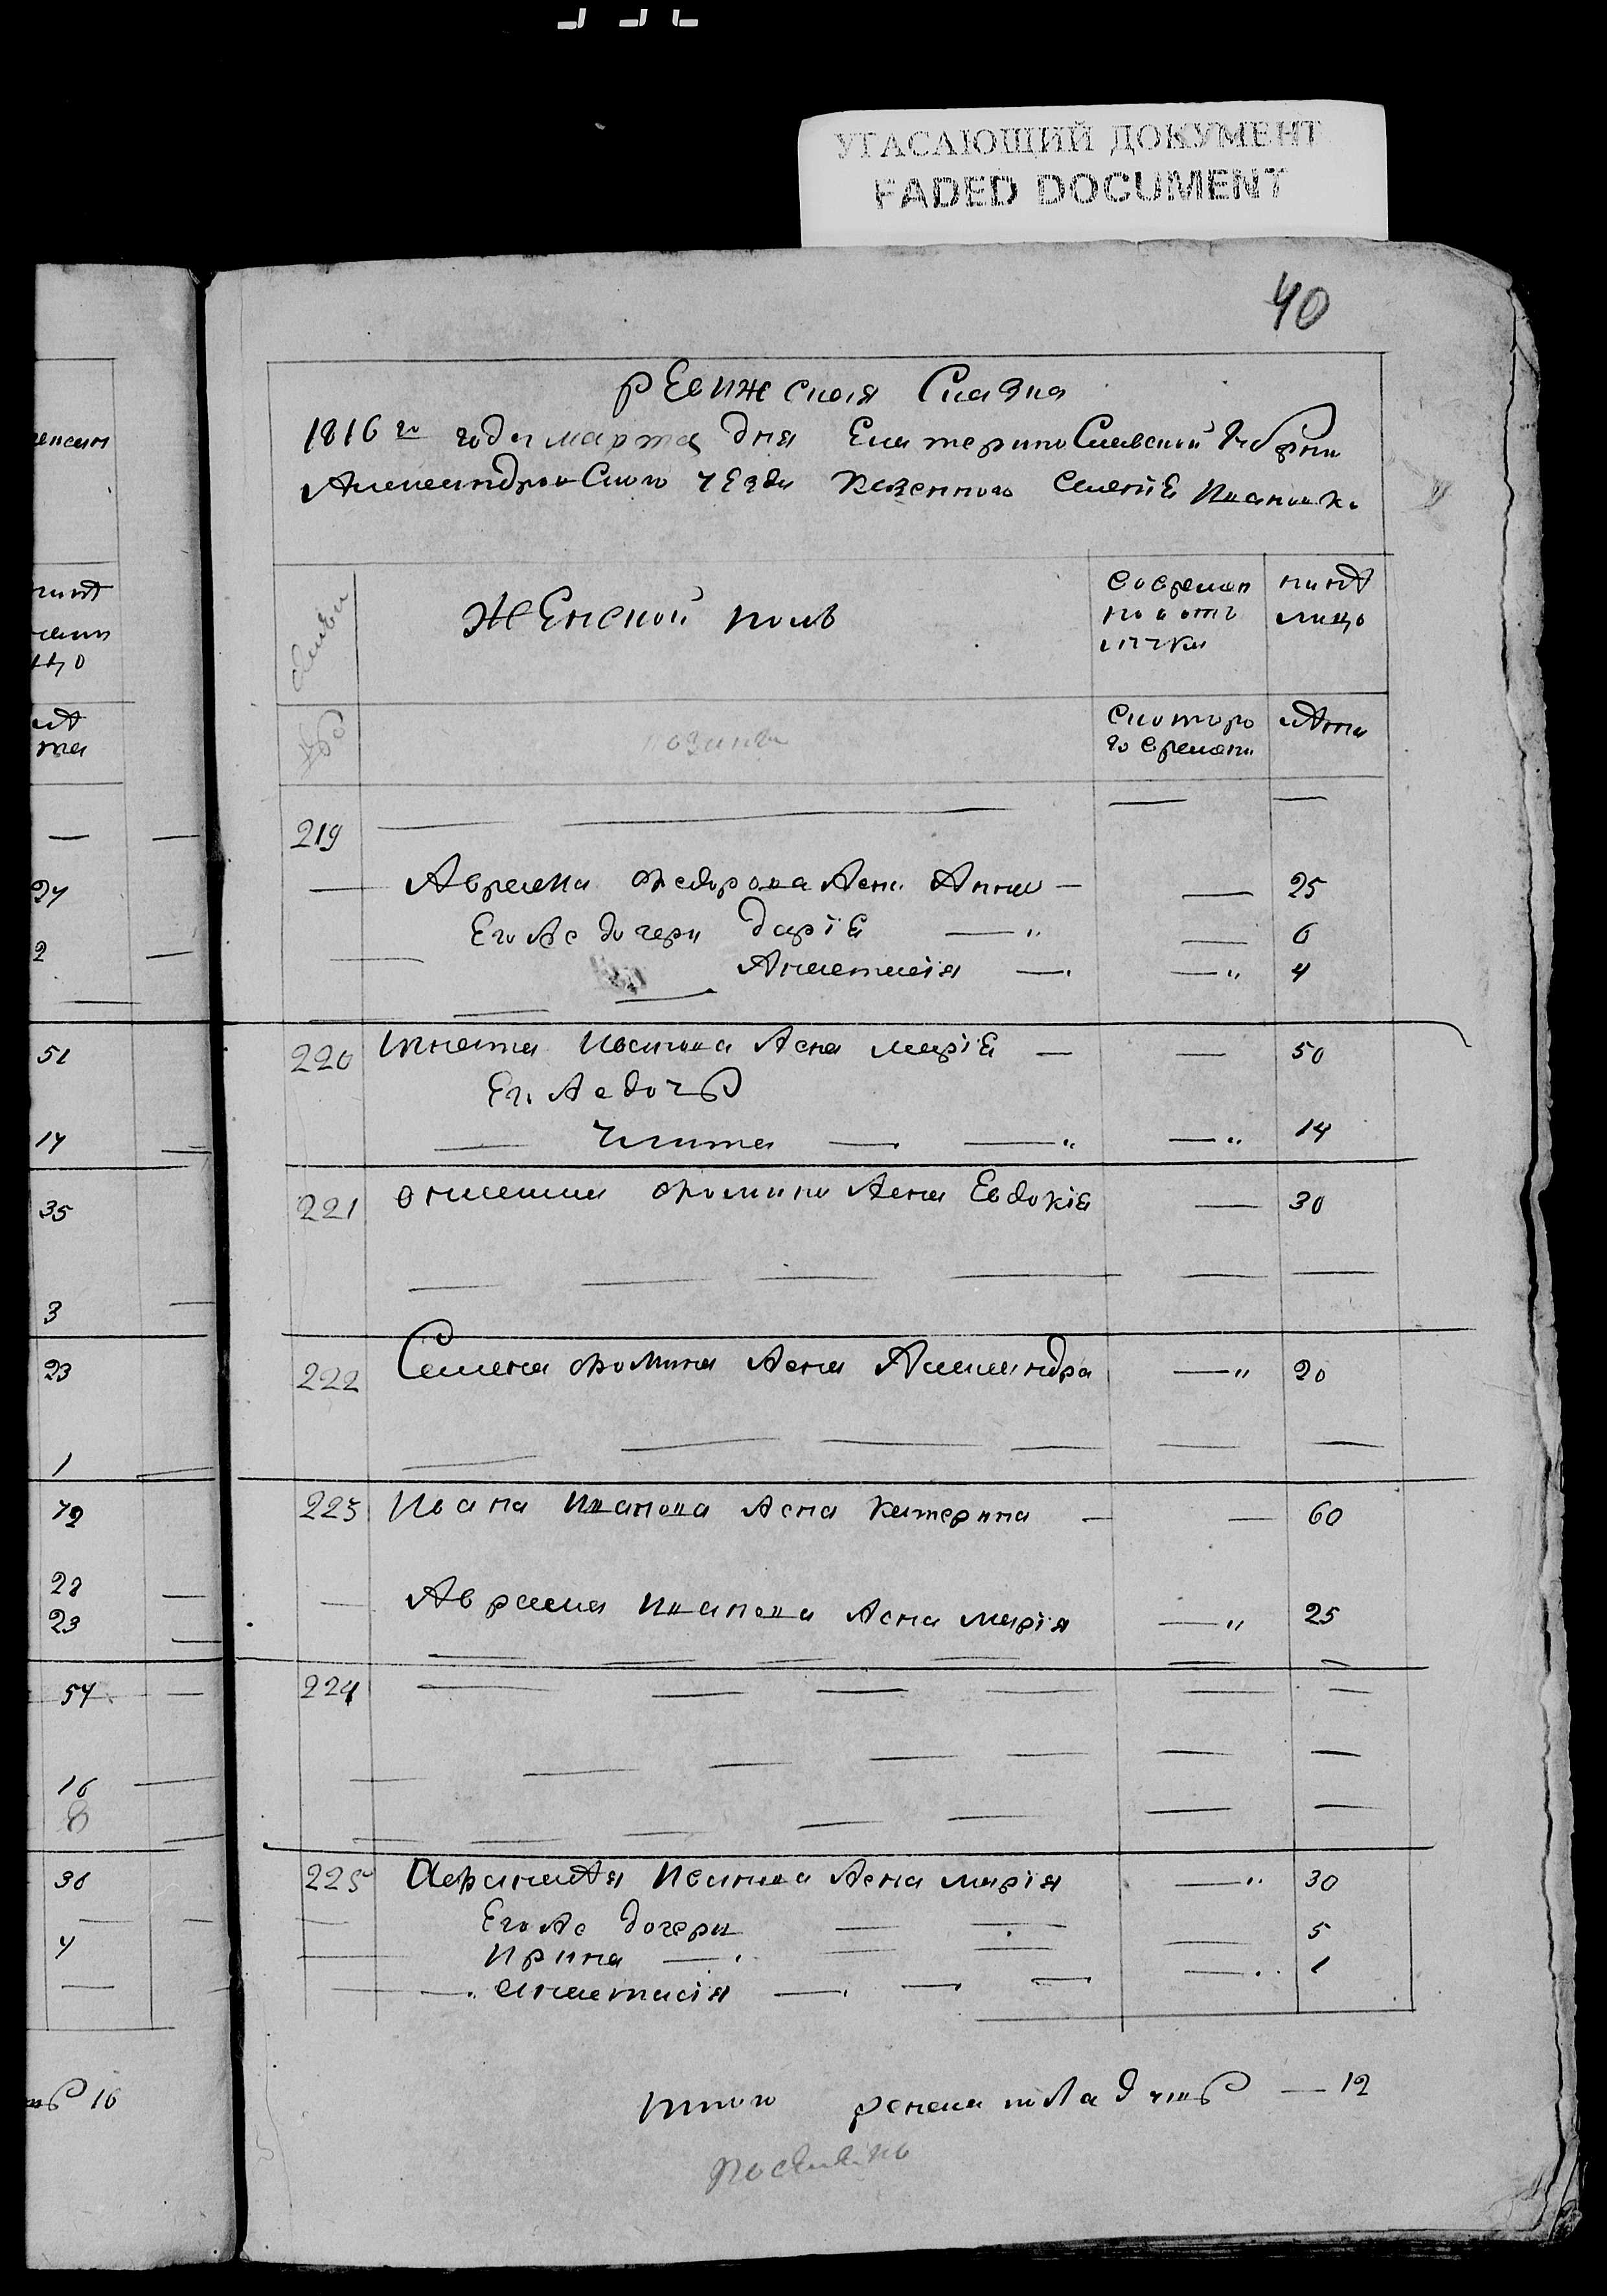 УГАСАЮЩИЙ ДОКУМЕНТ
FADED DOCUMENT
40
ревижская сказка
1816 го года марта дня Екатеринославской губерни
Александровского уезда казенного селения Ивановки
семьи
женской пол
в времен
но отл
учки
ныне
лицо
с которо
го времени
лета
219
Авраама Федорова жена Анна 25
Его же дочери Дарiе 6
Анастасiя 4
220 Игната Иванова жена марiе 50
Его же дочь
Улита 14
221 Фомина жена Евдокiе 30
222 Семена Фомина жена Александра 20
223 Ивана Иванова жена Катерина 60
Авраама Иванова жена марiя 25
224
225 Иванова жена марiя 30
Его же дочери 5
Ирина 1
анастасiя
итого женска пола душ 12
27
2
51
14
35
3
23
1
72
28
23
54
16
8
36
4
16